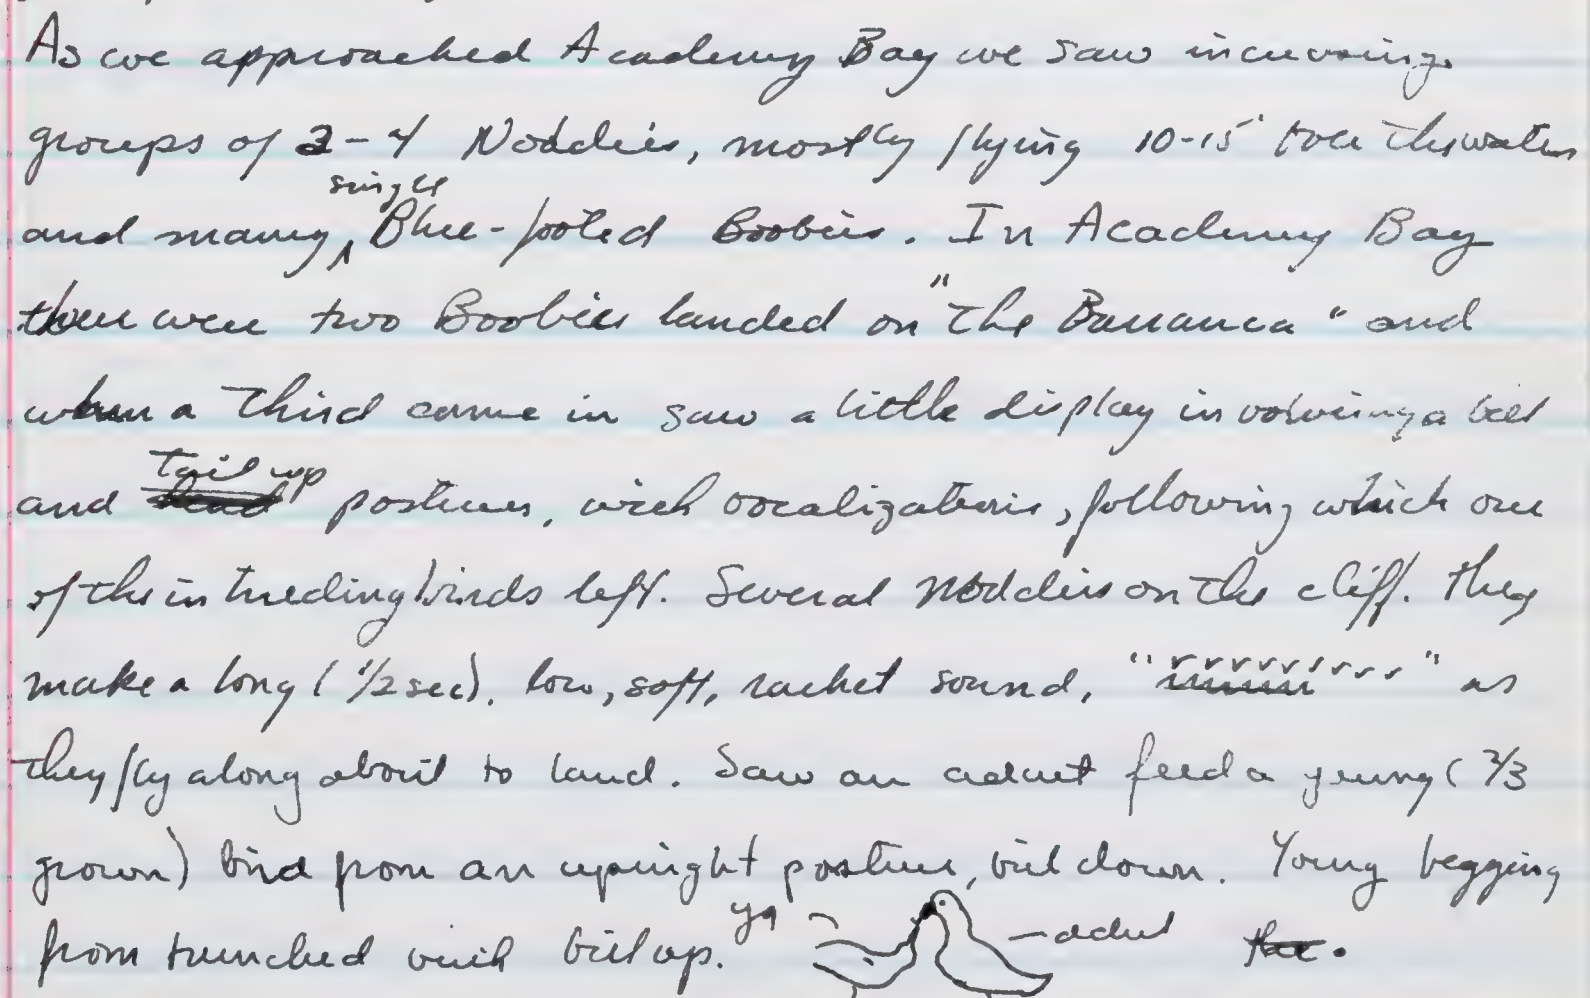 As we approached Academy Bay we saw increasing
groups of 2-4 Noddies, mostly flying 10-15' over the water
and many single Blue-footed Boobies. In Academy Bay
there were two Boobies landed on "The Barranca" and
when a third came in saw a little display involving a bill
and tail up postures, with vocalizations, following which one
of the intruding birds left. Several Noddies on the cliff. They
make a long (1/2 sec), low, soft, rachet sound, "rrrrrrrrr" as
they fly along about to land. Saw an adult feed a young (2/3
grown) bird from an upright posture, bill down. Young begging
from hunched with bill up. yg - adult